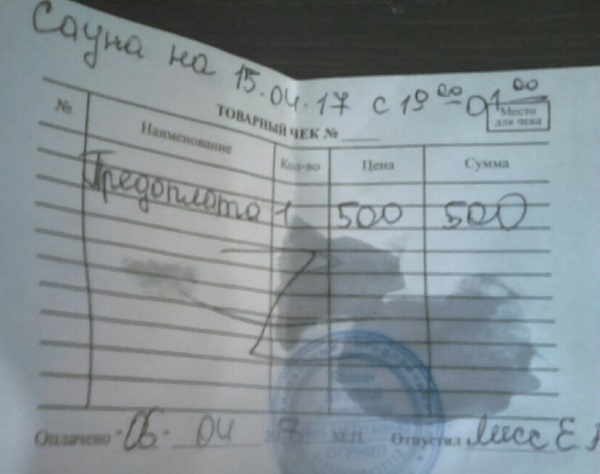 Сауна на 15.04.17 с 19⁰⁰-01⁰⁰
ТОВАРНЫЙ ЧЕК №
Место
для чека
№ Наименование Кол-во Цена Сумма
Предоплата 1 500 500
Оплачено "06" 04 17 М.П. Отпустил